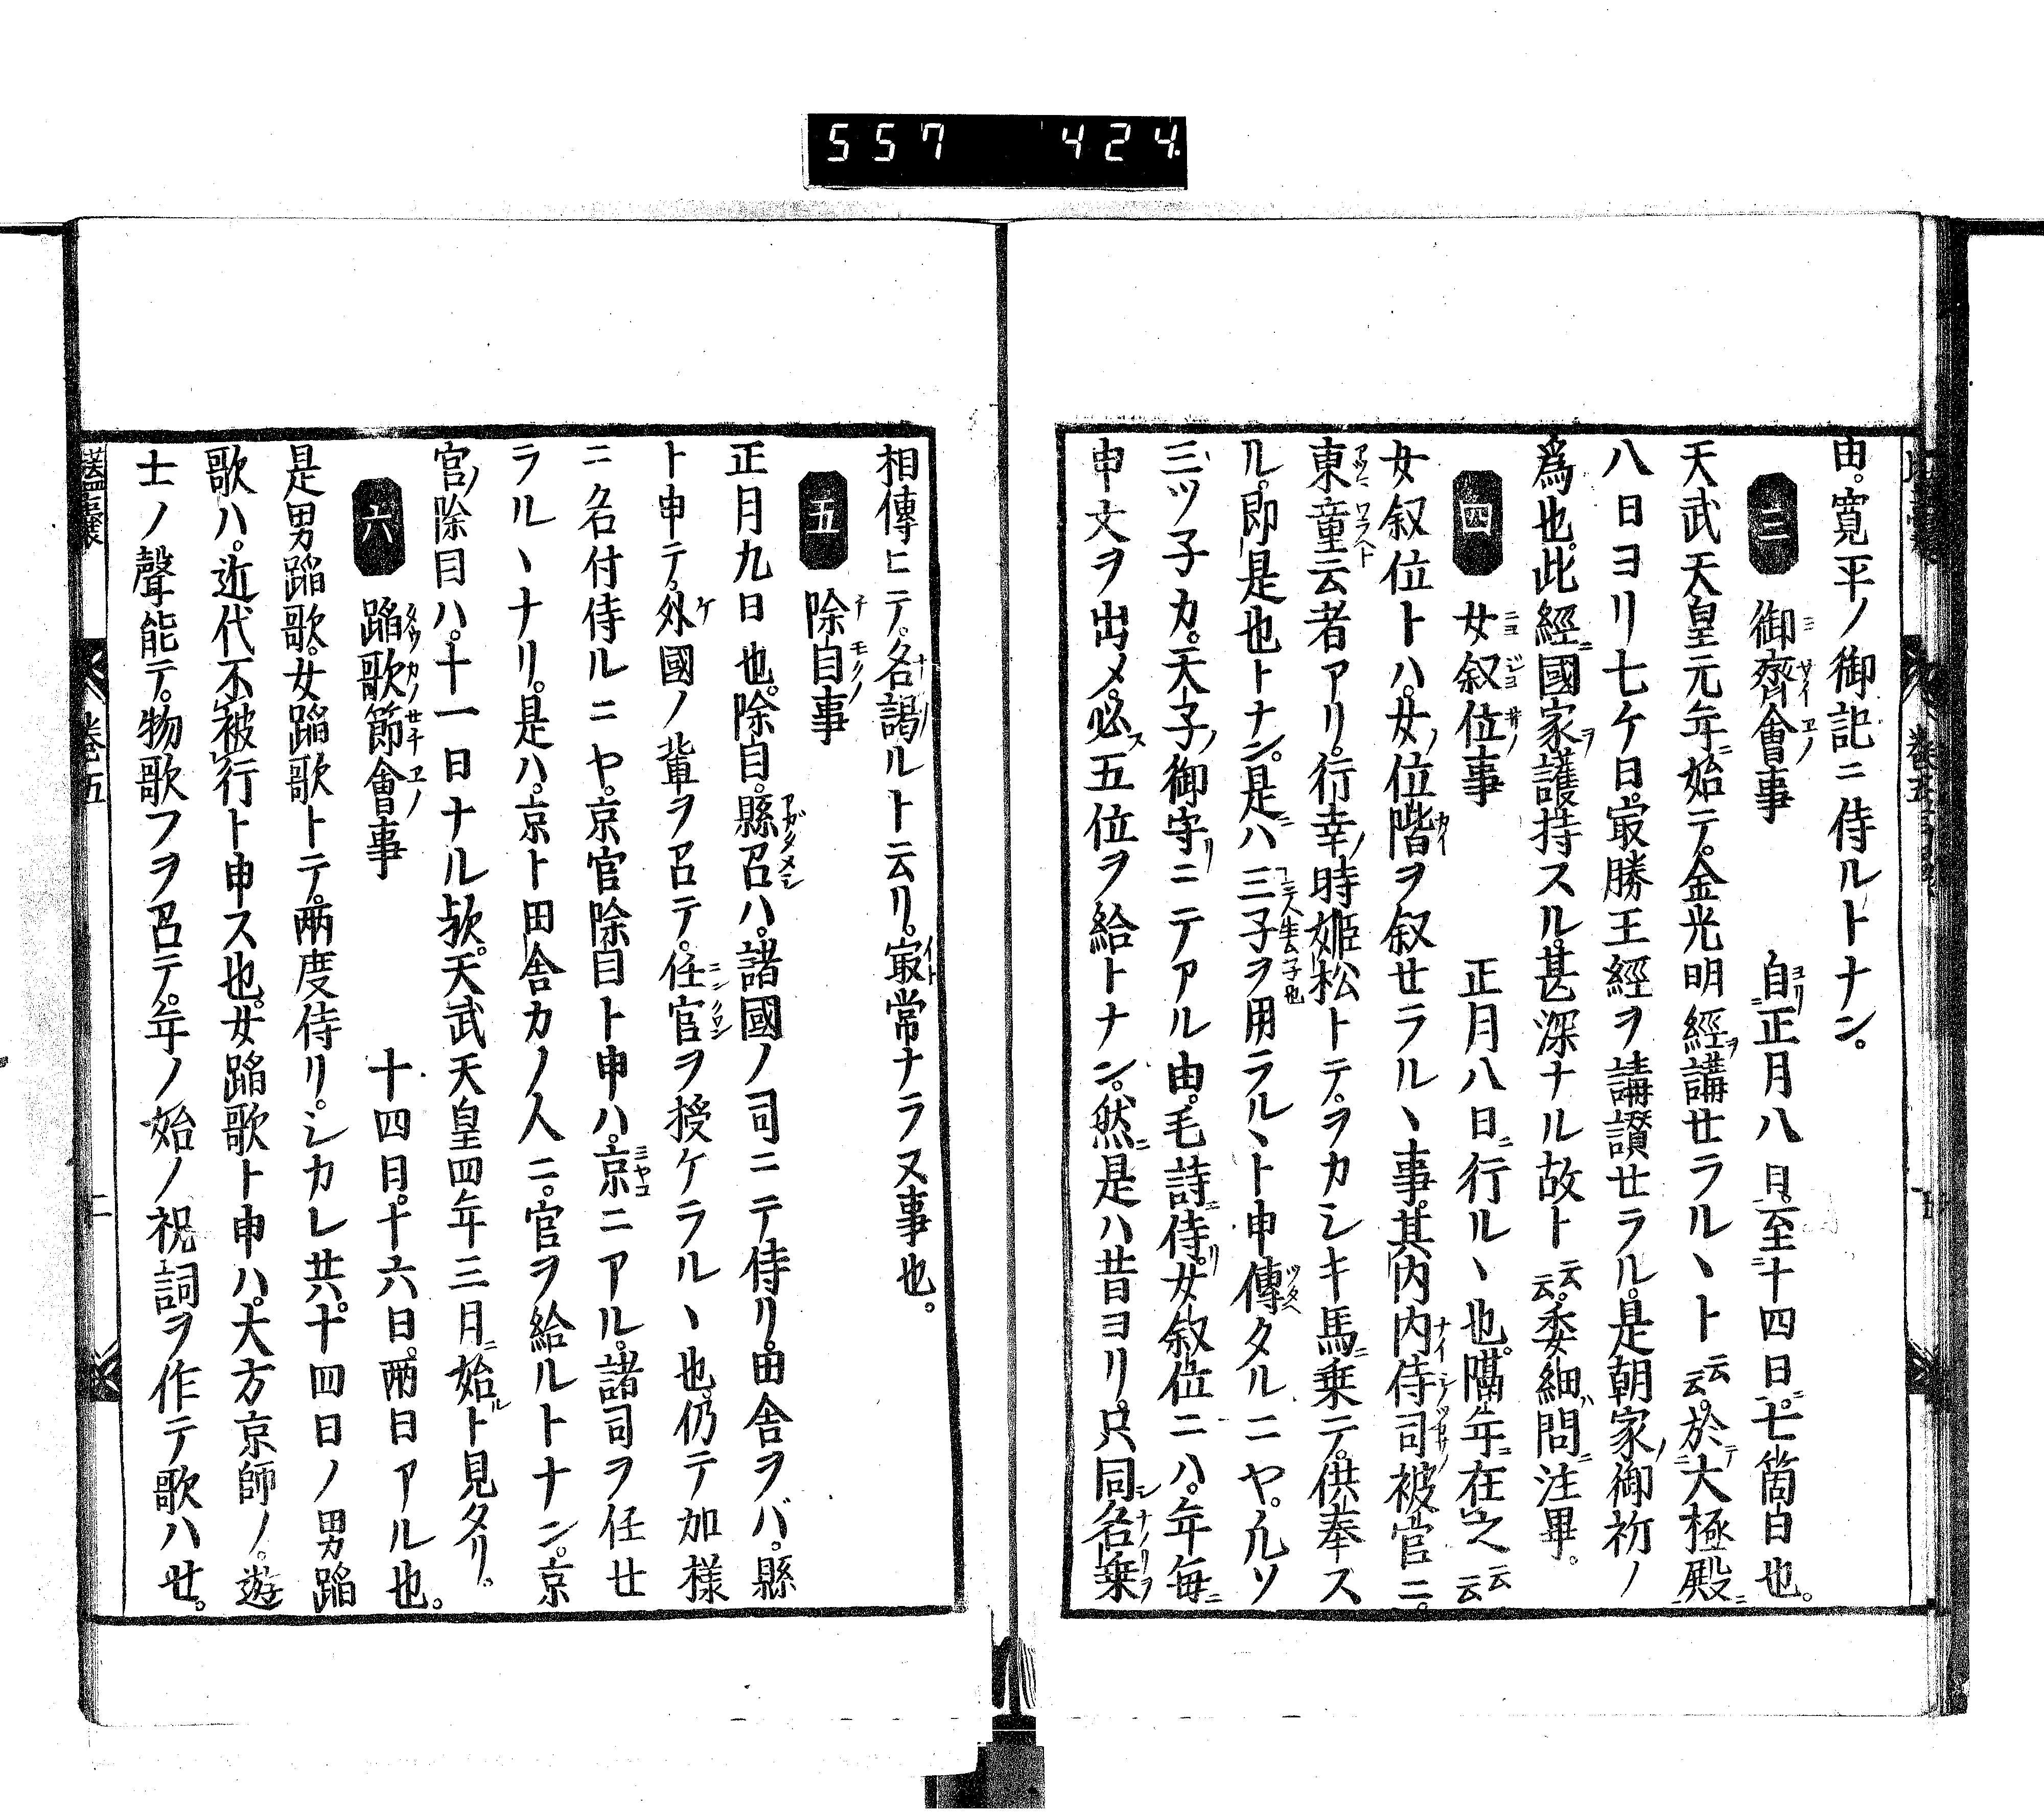 557 424
由。寛平ノ御記ニ侍ルトナン。
三 御齋會事 自正月八日。至十四日。七箇日也。
天武天皇元年始テ。金光明經講セラルヽト云云。於大極殿
八日ヨリ七ケ日。最勝王經ヲ講讃セラル。是朝家御祈ノ
爲也。此經國家護持スル。甚深ナル故ト云云。委細問注畢。
四 女叙位事 正月八日行ルヽ也。隔年在之云云
女叙位トハ。女位階ヲ叙セラルヽ事。其内内侍司被官ニ。
東童云者アリ。行幸時姫松トテ。ヲカシキ馬乗テ。供奉ス
ル。即是也トナン。是ハ三子ヲ用ラルヽト申傳タルニヤ。凡ソ
三ツ子カ。天子御守ニテアル由。毛詩侍。女叙位ニハ。年毎
申文ヲ出メ。必五位ヲ給トナン。然是ハ昔ヨリ。只同名乗
相傳ヒテ。名謁ルト云リ。最常ナラヌ事也。
五 除目事
正月九日也。除目。縣召ハ。諸國ノ司ニテ侍リ。田舎ヲバ。縣
ト申テ。外國ノ輩ヲ召テ。任官ヲ授ケラルヽ也。仍テ加様
ニ名付侍ルニヤ。京官除目ト申ハ。京ニアル。諸司ヲ任セ
ラルヽナリ。是ハ。京ト田舎カノ人ニ。官ヲ給ルトナン。京
官除目ハ。十一日ナル歟。天武天皇四年三月始ト見タリ。
六 蹈歌節會事 十四日。十六日。兩日アル也。
是男蹈歌。女蹈歌トテ。兩度侍リ。シカレ共。十四日ノ男蹈
歌ハ。近代不被行ト申ス也。女蹈歌ト申ハ。大方京師ノ。遊
士ノ聲能テ。物歌フヲ召テ。年ノ始ノ祝詞ヲ作テ歌ハセ。
壒囊 卷五 二